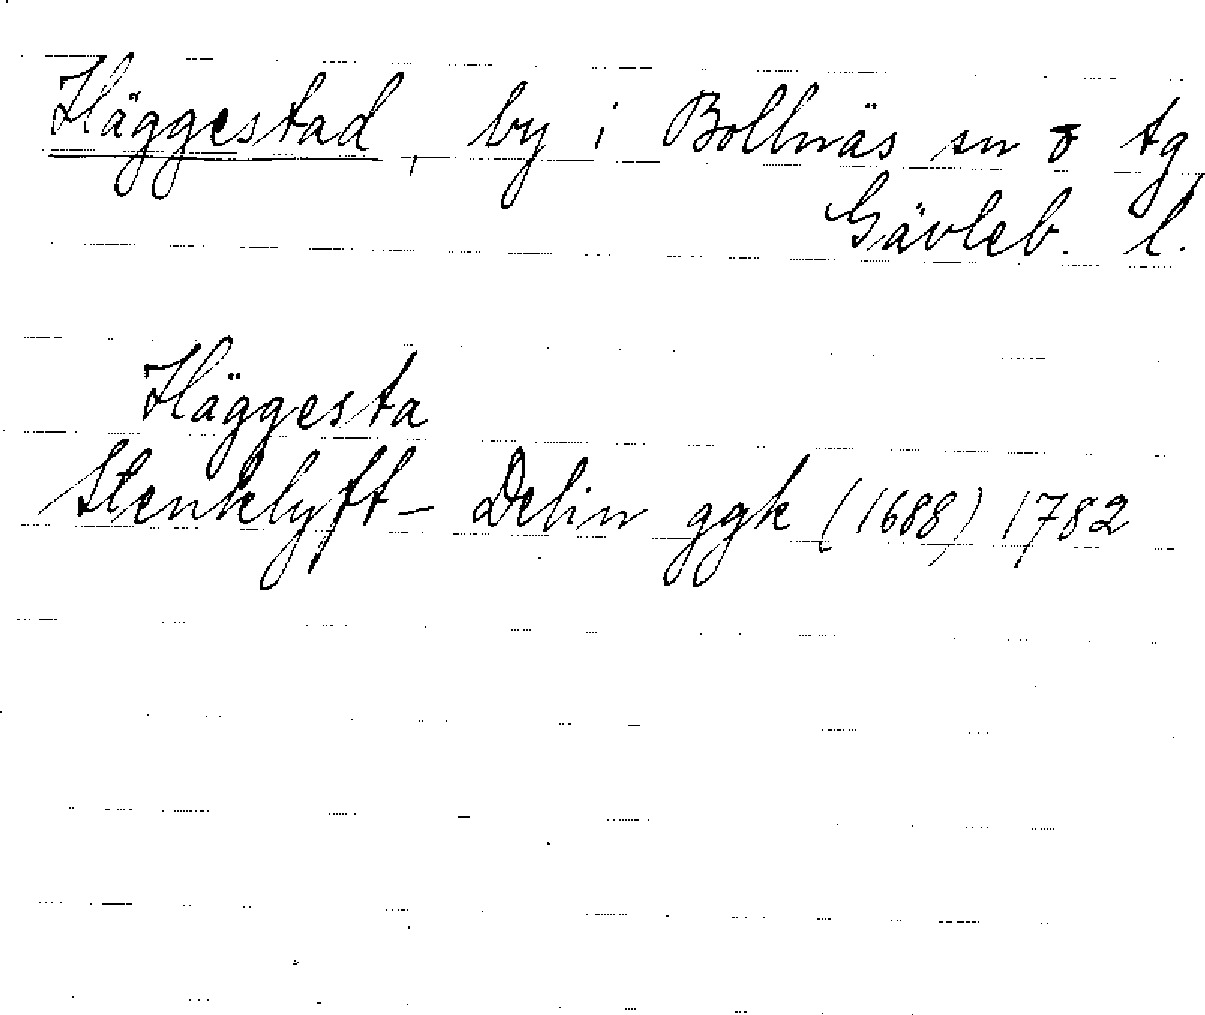 Häggestad, by i Bollnäs sn o tg,
Gävleb. l.
Häggesta
Stenklyft - Delin ggk (1688) 1782